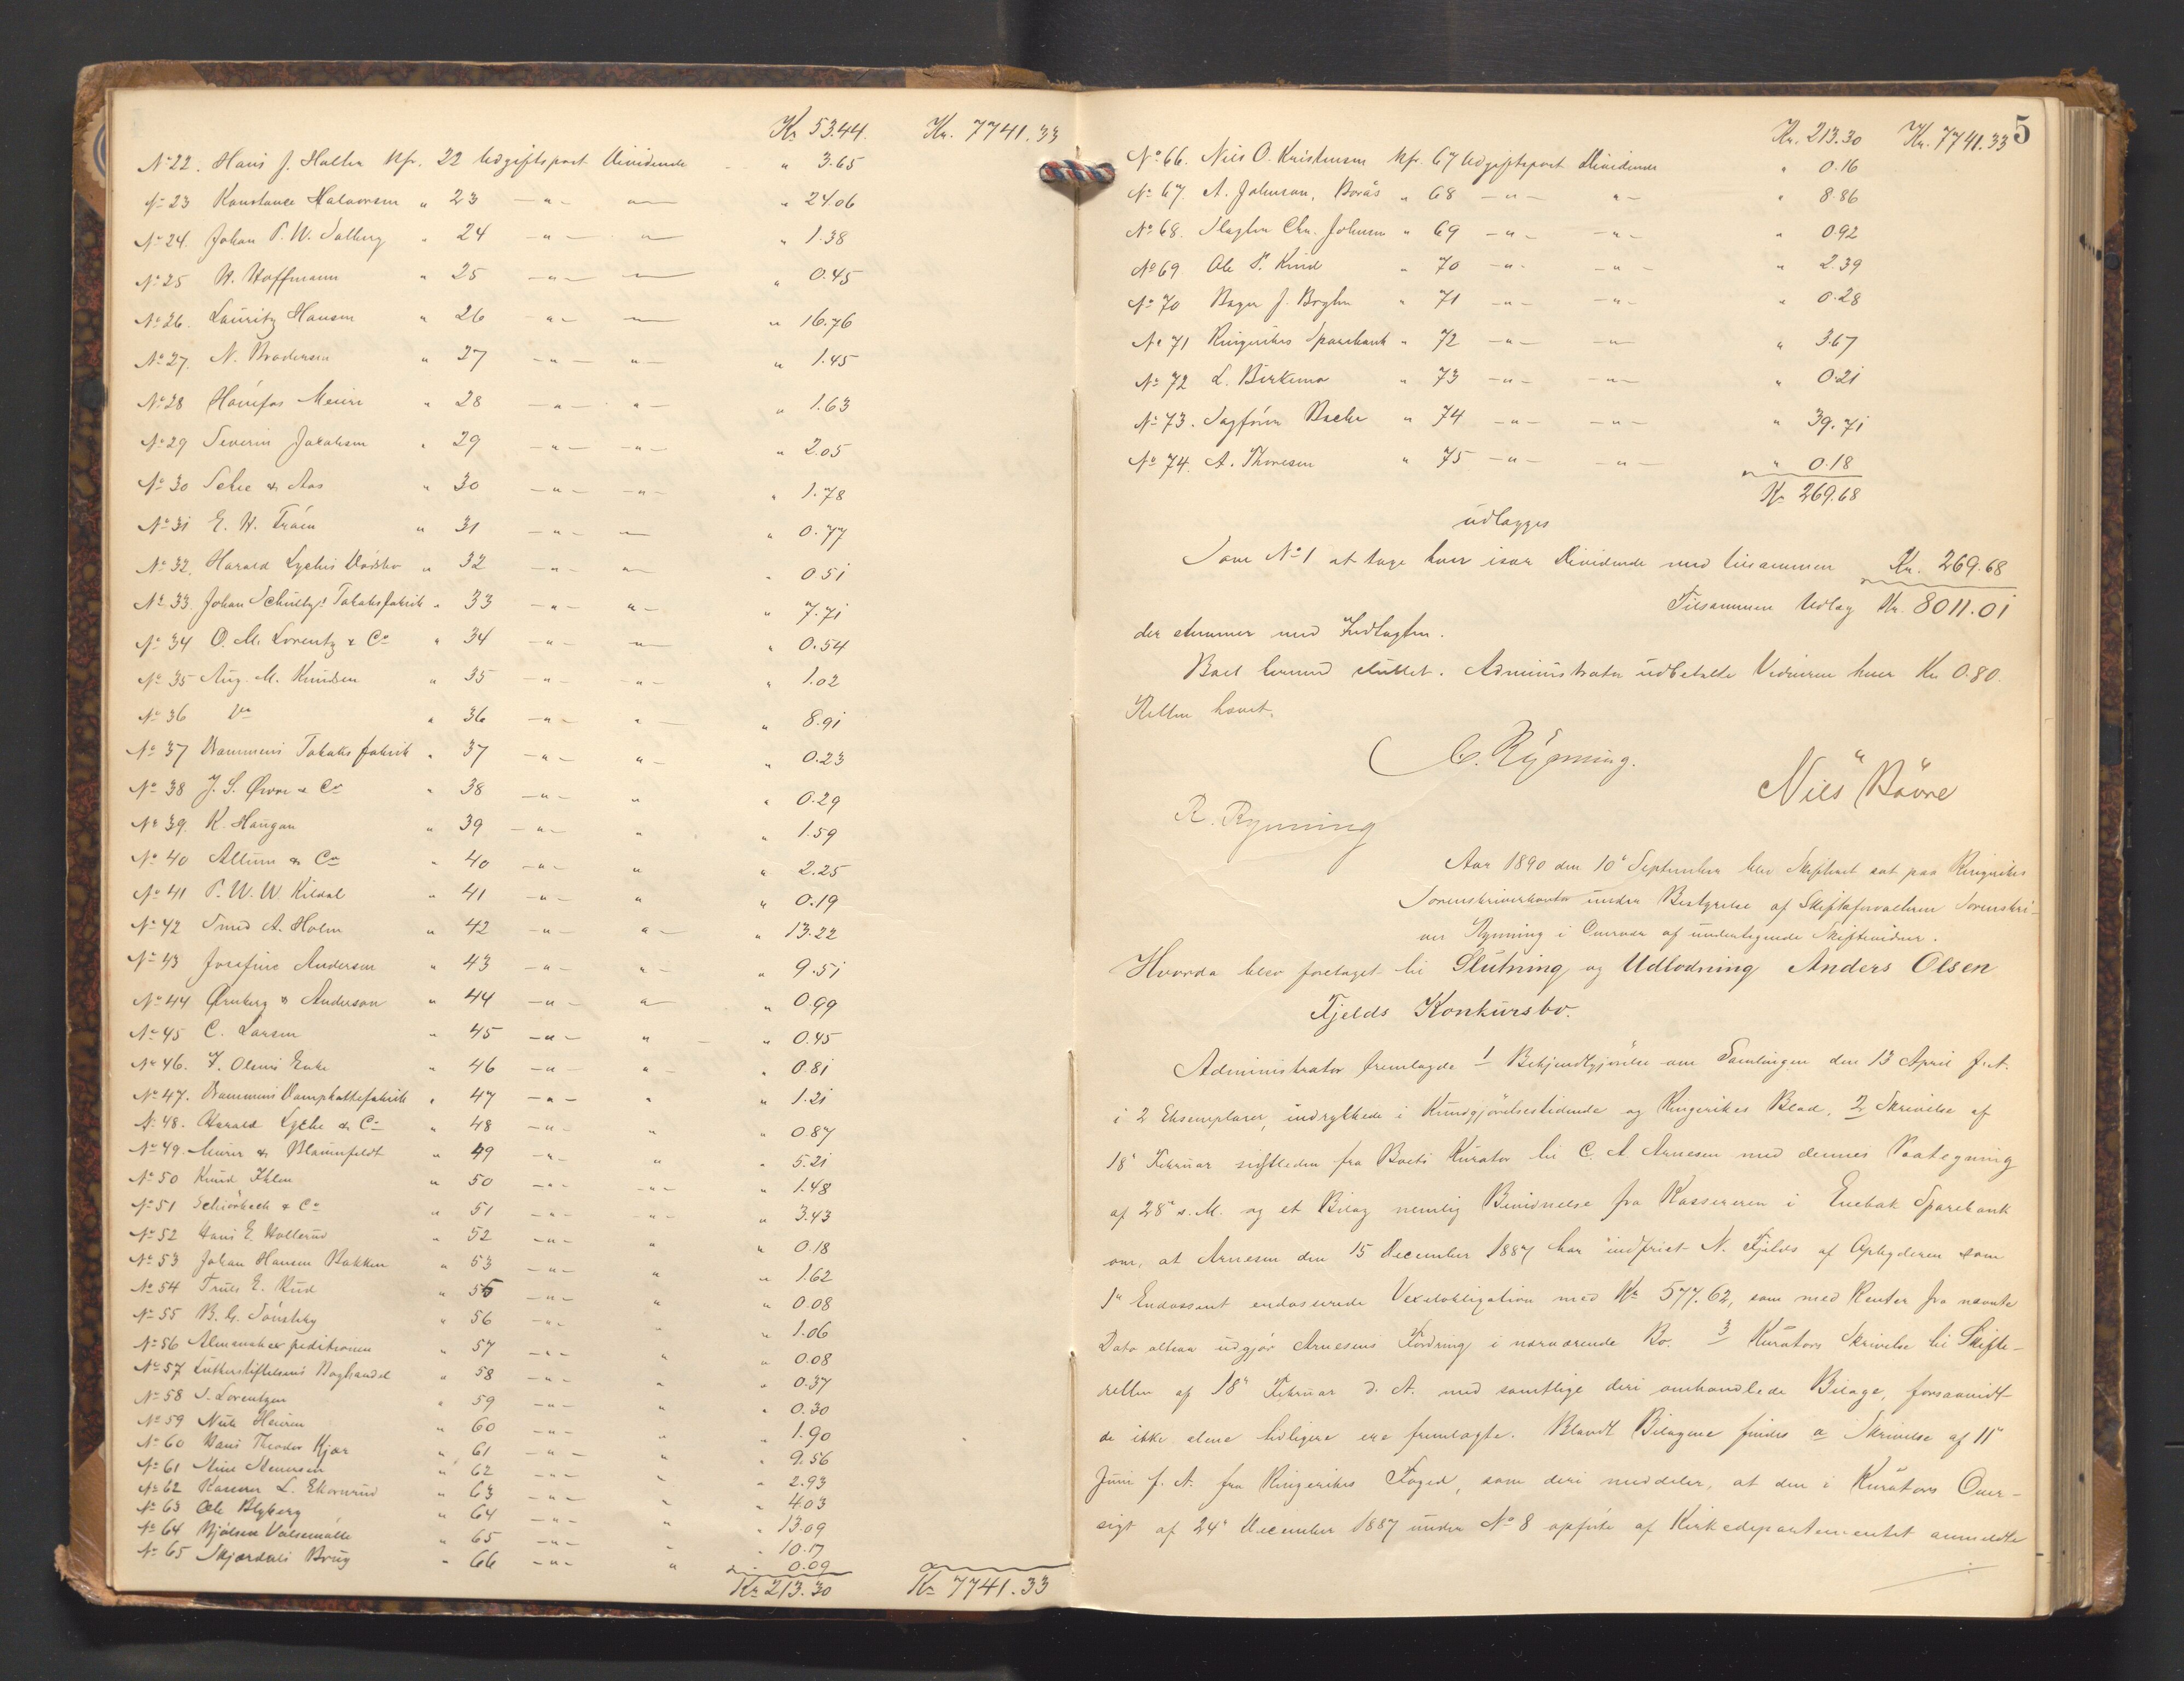 Kr 53.44. Kr. 7741.33
No 22. Hans J. Halten Nfr. 22 Udgiftspost Dividende " 3.65
No 23 Konstance Halvorsen " 23 -"- " 24.06
No 24. Johan P. W. Salberg " 24 -"- " 1.38
No 25 H. Hoffmann " 25 -"- " 0.45
No 26. Lauritz Hansen " 26 -"- " 16.76
No 27. N. Brodersen " 27 -"- "- " 1.45
No 28 Hönefos Meieri " 28 -"- "- " 1.63
No 29 Severin Jakobsen " 29 -"- -"- " 2.05
No 30 Sehee & Aas " 30 -"- -"- " 1.78
No 31 E. H. Traen " 31 -"- " 0.77
No 32. Harald Lyches " 32 -"- " 0.51
No 33. Johan Schultz's Tobaksfabrik " 33 -"- "- " 7.71
No 34 O. M. Lorentz & Co " 34 -"- " 0.54
No 35 Aug. M. Knudsen " 35 -"- -"- " 1.02
No 36 Do " 36 -"- "- " 8.91
No 37 Drammens Tobaks fabrik " 37 -"- "- " 0.23
No 38 J. S. & Co " 38 -"- " " 0.29
No 39. K. Haugan " 39 -"- " " 1.59
No 40 Allum & Co " 40 -"- " " 2.25
No 41 P. W. W. Kildal " 41 -"- " " 0.19
No 42 Smed A. Holm " 42 -"- "- " 13.22
No 43 Josefine Andersen " 43 -"- "- " 9.51
No 44 Ørnberg & Anderson " 44 -"- " 0.99
No 45 C. Larsen " 45 -"- " " 0.45
No 46. F. Olsens Enke " 46 -"- "- " 0.81
No 47. Drammens Dampkaffefabrik " 47 -"- " " 1.21
No 48. Harald Lyche & Co " 48 -"- " " 0.87
No 49. Meier & Blaunfeldt " 49 -"- " " 5.21
No 50 Knud Ihlen " 50 -"- -"- " 1.48
No 51 Schiörbeck & Co " 51 -"- -"- " 3.43
No 52 Hans E. Hollerud " 52 -"- " " 0.18
No 53 Johan Hansen Bakken " 53 -"- " " 1.62
No 54 Truls E. Rud " 55 -"- " " 0.08
No 55 B. G. Tönseby " 56 -"- " " 1.06
No 56 Almanakexpeditionen " 57 -"- " " 0.08
No 57 Lutherstiftelsens Boghandel " 58 -"- " " 0.37
No 58 S. Lorentzen " 59 -"- " " 0.30
No 59 Nils " 60 -"- " " 1.90
No 60 Hans Theodor Kjær " 61 -"- " " 9.56
No 61 " 62 -"- " " 2.93
No 62 Kasserer L. Ekornrud " 63 -"- " " 4.03
No 63 Ole Blyberg " 64 -"- " " 13.09
No 64 Bjölsen Valsemölle " 65 -"- " " 10.17
No 65 Skjærdals Brug " 66 -"- " " 0.09
Kr 213.30 Kr 7741.33
Kr. 213.30 Kr. 7741.33 5
No 66. Nils O. Kristensen Nfr. 67 Udgiftspost Dividende " 0.16
No 67. A. Johnson, Borås " 68 -"- "- " 8.86
No 68. Slagter Chr. Johnsen " 69 -"- -"- " 0.92
No 69 Ole P. Kind " 70 -"- -"- " 2.39
No 70 Bager J. " 71 -"- -"- " 0.28
No 71 Ringerikes Sparebank " 72 -"- -"- " 3.67
No 72 L. Birkemo " 73 -"- -"- " 0.21
No 73. Sagförer Bache " 74 -"- -"- " 39.71
No 74. A. Thoresen " 75 -"- -"- " 0.18
Kr 269.68
udlægges
Som No 1 at tage hver især Dividende med tilsammen Kr. 269.68
Tilsammen Udlæg Kr. 8011.01
der stemmer med Indtægten.
Boet hermed sluttet. Administrator udbetalte Vidnerne hver Kr 0.80.
Retten hævet.
C. Rynning.
Nils Bävre
R. Rynning
Aar 1890 den 10de September blev Skifteret sat paa Ringerikes
Sorenskriverkontor under Bestyrelse af Skifteforvalteren Sorenskri-
ver Rynning i Overvær af undertegnede Skiftevidner.
Hvorda blev foretaget til Slutning og Udlodning Anders Olsen
Fjelds Konkursbo.
Administrator fremlagde 1 Bekjendtgjörelse om Samlingen den 13 April f. A.
i 2 Eksemplarer, indrykkede i Kundgjörelsestidende og Ringerikes Blad, 2 Skrivelse af
18de Februar sidstleden fra Boets Kurator til C. A Arnesen med dennes Paategning
af 28de s. M. og et Bilag nemlig Bevidnelse fra Kassereren i Enebak Sparebank
om, at Arnesen den 15 December 1887 har indfriet N. Fjelds af Opbyderen som
1ste Endossent endosserede Vexelobligation med Kr 577.62, som med Renter fra nævnte
Dato altsaa udgjör Arnesens Fordring i nærværende Bo. 3 Kurators Skrivelse til Skifte-
retten af 18de Februar d. A. med samtlige deri omhandlede Bilage, forsaavidt
de ikke alene tidligere ere fremlagte. Blandt Bilagene findes a Skrivelse af 11te
Juni f. A. fra Ringerikes Foged, som deri meddeler, at den i Kurators Over-
sigt af 24de December 1887 under No 8 opförte af Kirkedepartementet anmeldte